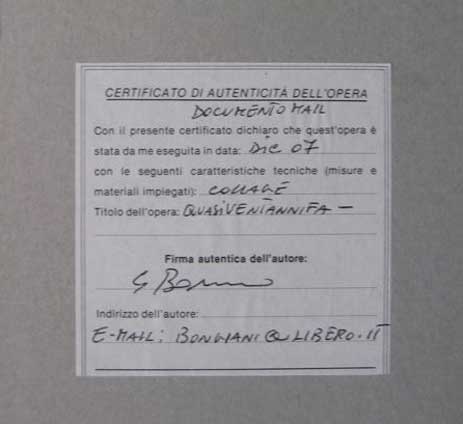 CERTIFICATO DI AUTENTICITÀ DELL'OPERA
DOCUMENTO MAIL
Con il presente certificato dichiaro che quest'opera è
stata da me eseguita in data: DIC 07
con le seguenti caratteristiche tecniche (misure e
materiali impiegati): COLLAGE
Titolo dell'opera: QUASIVENTANNIFA —
Firma autentica dell'autore:
Indirizzo dell'autore:
E-MAIL: BONGIANI@LIBERO.IT